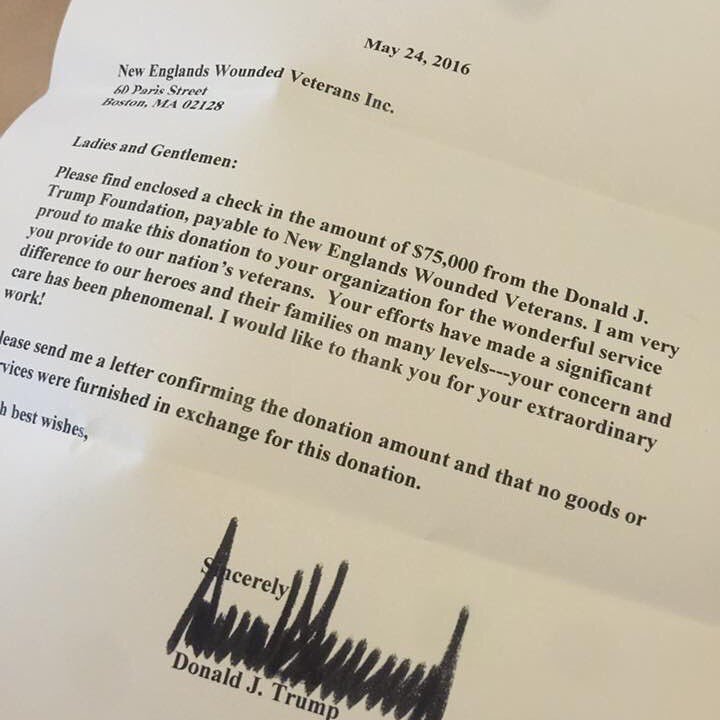 May 24, 2016
New Englands Wounded Veterans Inc.
60 Paris Street
Boston, MA 02128
Ladies and Gentlemen:
Please find enclosed a check in the amount of $75,000 from the Donald J.
Trump Foundation, payable to New Englands Wounded Veterans. I am very
proud to make this donation to your organization for the wonderful service
you provide to our nation's veterans. Your efforts have made a significant
difference to our heroes and their families on many levels---your concern and
care has been phenomenal. I would like to thank you for your extraordinary
work!
lease send me a letter confirming the donation amount and that no goods or
rvices were furnished in exchange for this donation.
h best wishes,
Sincerely
Donald J. Trump